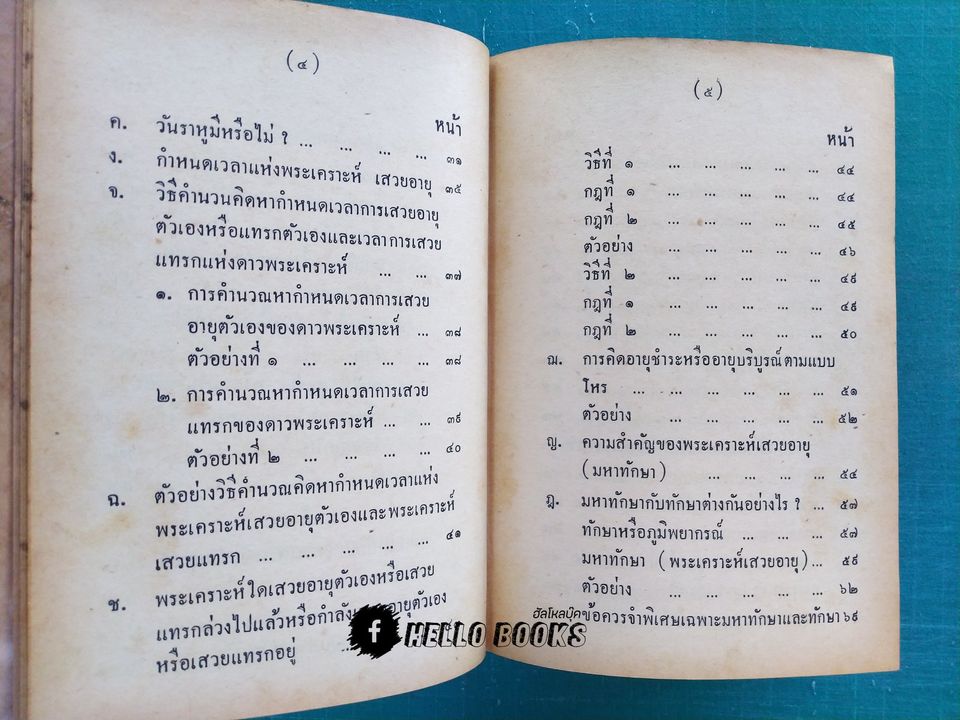 (๔)
หน้า
ค. วันราหูมีหรือไม่ ? ... ... ... ... ๓๑
ง. กำหนดเวลาแห่งพระเคราะห์ เสวยอายุ ๓๕
จ. วิธีคำนวนคิดหากำหนดเวลาการเสวยอายุ
ตัวเองหรือแทรกตัวเองและเวลาการเสวย
แทรกแห่งดาวพระเคราะห์ ... ... ๓๗
๑. การคำนวณหากำหนดเวลาการเสวย
อายุตัวเองของดาวพระเคราะห์ ... ๓๘
ตัวอย่างที่ ๑ ... ... ... ... ๓๘
๒. การคำนวณหากำหนดเวลาการเสวย
แทรกของดาวพระเคราะห์ ... ... ๓๙
ตัวอย่างที่ ๒ ... ... ... ... ๔๐
ฉ. ตัวอย่างวิธีคำนวณคิดหากำหนดเวลาแห่ง
พระเคราะห์เสวยอายุตัวเองและพระเคราะห์
เสวยแทรก ... ... ... ... ... ๔๑
ช. พระเคราะห์ใดเสวยอายุตัวเองหรือเสวย
แทรกล่วงไปแล้วหรือกำลัง อายุตัวเอง
หรือเสวยแทรกอยู่ ...
(๕)
หน้า
วิธีที่ ๑ ... ... ... ... ... ๔๔
กฎที่ ๑ ... ... ... ... ... ๔๔
กฎที่ ๒ ... ... ... ... ... ๔๕
ตัวอย่าง ... ... ... ... ... ๔๖
วิธีที่ ๒ ... ... ... ... ... ๔๙
กฎที่ ๑ ... ... ... ... ... ๔๙
กฎที่ ๒ ... ... ... ... ... ๕๐
ฌ. การคิดอายุชำระหรืออายุบริบูรณ์ตามแบบ
โหร ... ... ... ... ... ... ๕๑
ตัวอย่าง ... ... ... ... ... ๕๒
ญ. ความสำคัญของพระเคราะห์เสวยอายุ
(มหาทักษา) ... ... ... ... ๕๔
ฎ. มหาทักษากับทักษาต่างกันอย่างไร ? ... ๕๗
ทักษาหรือภูมิพยากรณ์ ... ... ... ๕๗
มหาทักษา (พระเคราะห์เสวยอายุ)... ๕๙
ตัวอย่าง ... ... ... ... ... ๖๒
ข้อควรจำพิเศษเฉพาะมหาทักษาและทักษา ๖๙
ฮัลโหลบุ๊ค
f HELLO BOOKS